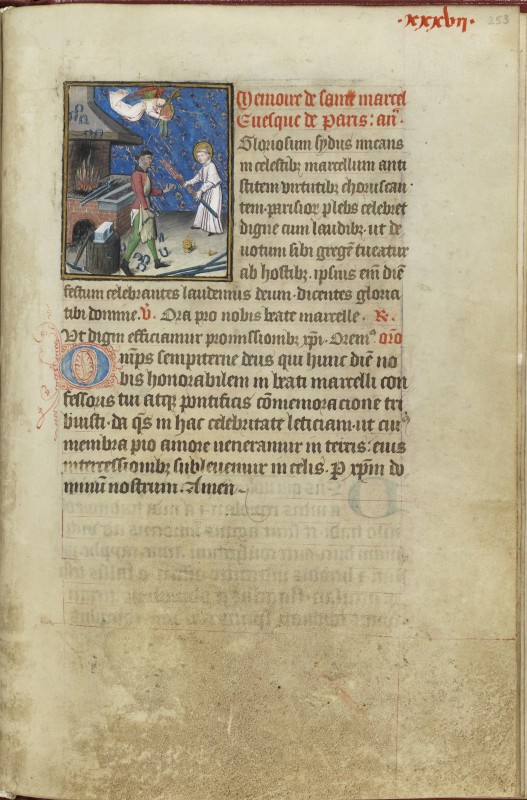 ·xxxvii·
253
Memoire de saint marcel
Euesque de Paris: añ·
Gloriosum sydus micans
in celestibz marcellum anti
stitem virtutibz choruscan
tem· parisioz plebs celebret
digne cum laudibz· ut de
uotum sibi gregē tueatur
ab hostibz· ipsius em̄ diē
festum celebrantes laudemus deum· dicentes gloria
tibi domine. ℣. Ora pro nobis beate marcelle. ℟.
Vt digni efficiamur promissionibz xpi· Oremˢ oro
Omps sempiterne deus qui hunc diē no
bis honorabilem in beati marcelli con
fessoris tui atqz pontificis cōmemoracione tri
buisti· da q̄s in hac celebritate leticiam· ut cuiˢ
membra pio amore veneramur in terris: eius
intercessionibz subleuemur in celis. P xpm do
minum nostrum. Amen